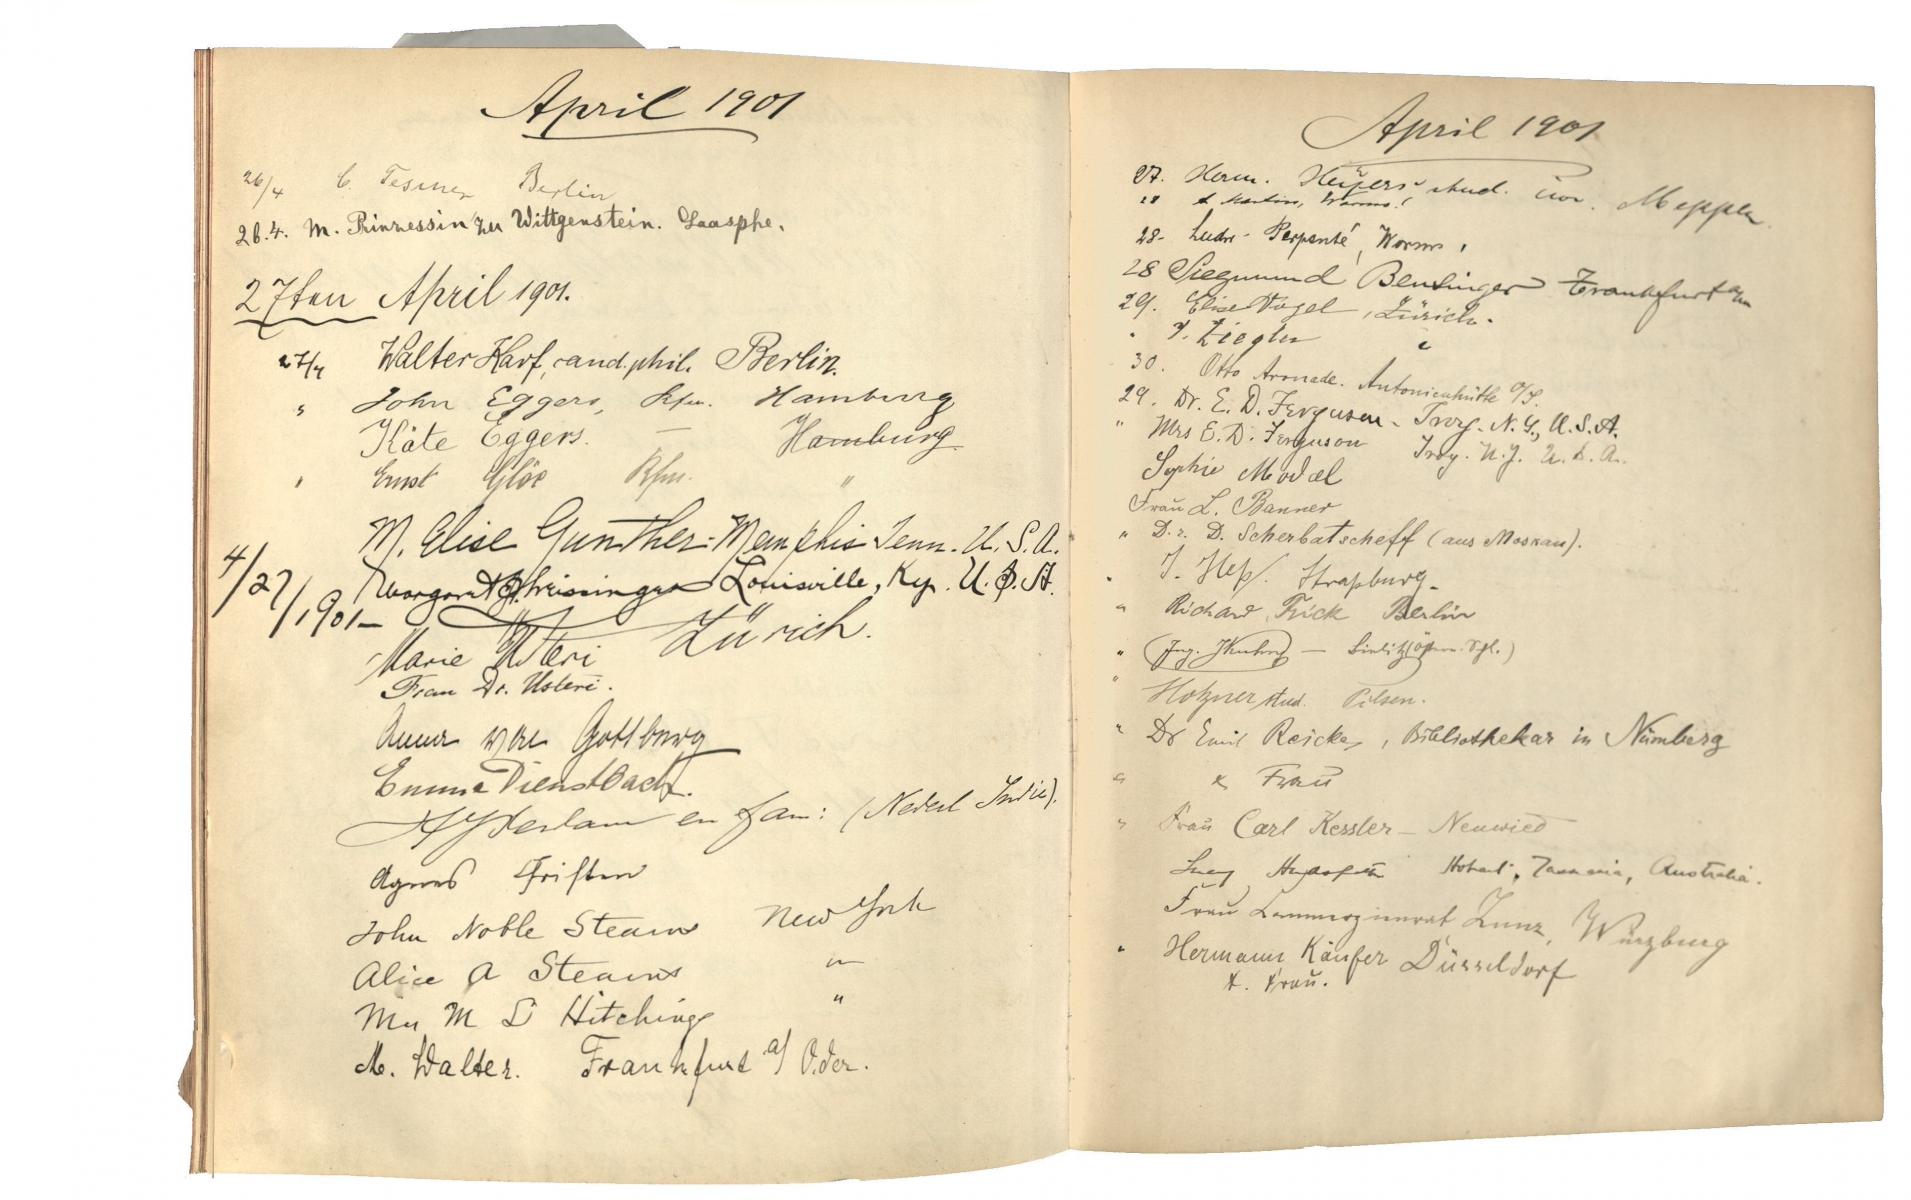 April 1901
26/4 C. Tesmer Berlin
26.4. M. Prinzessin zu Wittgenstein. Laasphe.
27ten April 1901.
27/4 Walter Harf, cand. phil. Berlin.
" John Eggers, Kfm. Hamburg
Käte Eggers. — Hamburg
" Ernst Glöe Kfm. "
M. Elise Gunther - Memphis Tenn. U. S. A.
4/27/1901— Margaret Louisville, Ky. U. S. A.
Marie Usteri Zürich.
Frau Dr. Usteri.
Anna von Gottberg
Emma Dienstbach.
en fam: (Nederl Indië).
Agnes
John Noble Stearns New York
Alice A Stearns "
M L Hitchings "
M. Walter. Frankfurt a/ Oder.
April 1901
27. Herm. Heÿers stud. iur. Meppen
28 A Martin, Worms.
28- Ludw- Perpenté, Worms,
28 Siegmund Bensinger Frankfurt a/m
29. Elise Vogel, Zürich.
" Ziegler "
30. Otto Aronade. Antonienhütte O/S.
29. Dr. E. D. Ferguson - Troy. N. Y., U.S.A.
" Mrs E. D. Ferguson Troy. N. Y. U. S. A.
Sophie Model
Frau L. Banner
" D. Scherbatscheff (aus Moskau).
" J. Heß. Straßburg-
" Richard Frick Berlin
" (Ing. —
" Hotzner stud. Pilsen.
" Dr Emil Reicke, Bibliothekar in Nürnberg
" & Frau
" Frau Carl Kessler - Neuwied
Hobart, Tasmania, Australia.
Frau Kommerzienrat Zunz, Würzburg
" Hermann Käufer Düsseldorf
u. Frau.